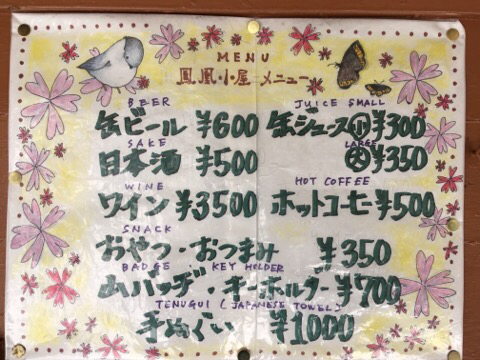 MENU
鳳凰小屋 メニュー
BEER
缶ビール ¥600
JUICE SMALL
缶ジュース小 ¥300
SAKE
日本酒 ¥500
LARGE
大 ¥350
WINE
ワイン ¥3500
HOT COFFEE
ホットコーヒー ¥500
SNACK
おやつ・おつまみ ¥350
BADGE KEY HOLDER
山バッヂ・キーホルダー ¥700
TENUGUI (JAPANESE TOWEL)
手ぬぐい ¥1000